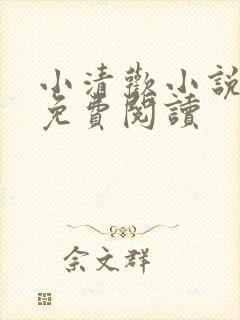 小清歡小說
免費閱讀
佘文群